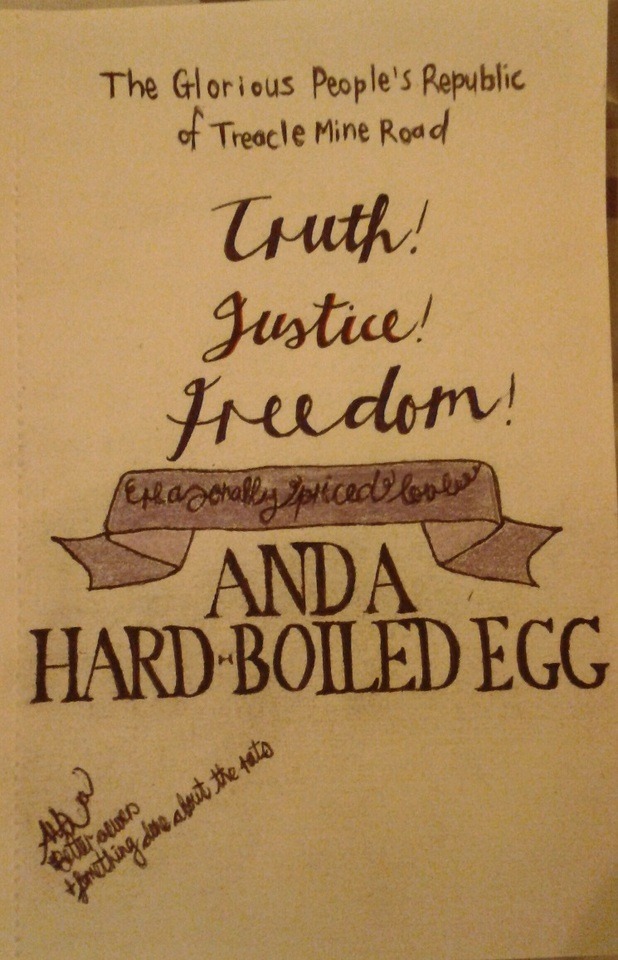 The Glorious People's Republic
of Treacle Mine Road
Truth!
Justice!
Freedom!
Reasonably priced love
AND A
HARD-BOILED EGG
Better sewers
+ Something done about the rats